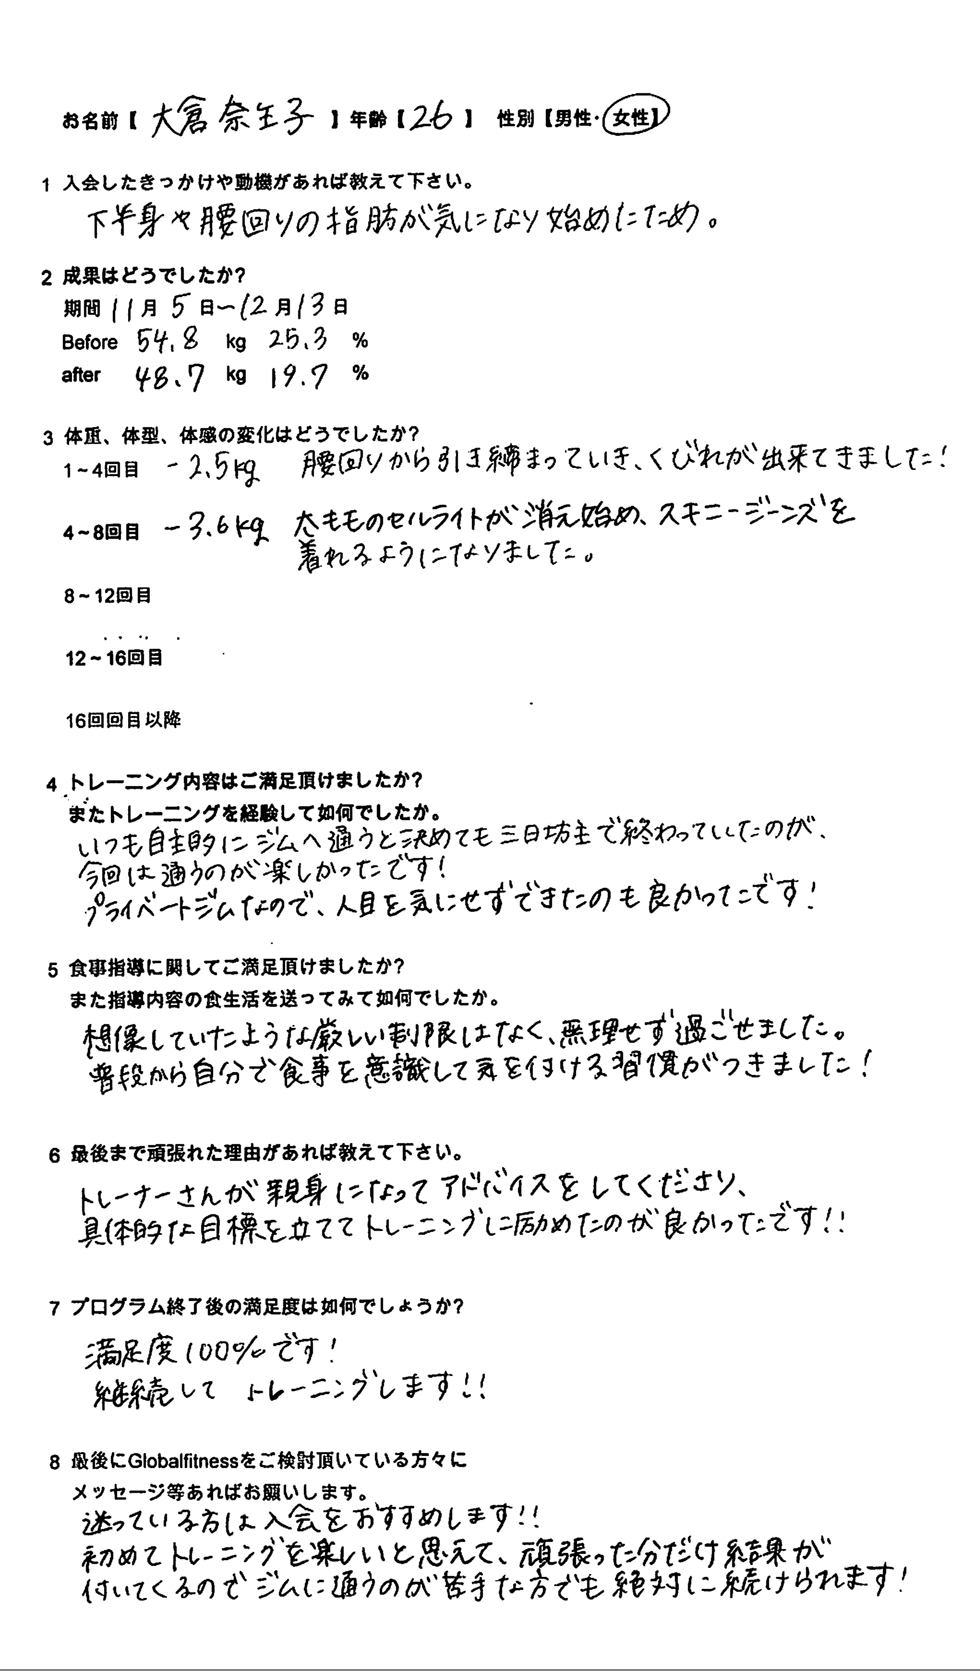 お名前【 大倉奈王子 】年齢【 26 】 性別【男性・女性】
1 入会したきっかけや動機があれば教えて下さい。
下半身や腰回りの指肪が気になり始めたため。
2 成果はどうでしたか?
期間 11月 5日~12月13日
Before 54.8 kg 25.3 %
after 48.7 kg 19.7 %
3 体重、体型、体感の変化はどうでしたか?
1~4回目 -2.5kg 腰回りから引き締まっていき、くびれが出来てきました!
4~8回目 -3.6kg 太もものセルライトが消え始め、スキニージーンズを
着れるようになりました。
8~12回目
12~16回目
16回回目以降
4 トレーニング内容はご満足頂けましたか?
またトレーニングを経験して如何でしたか。
いつも自主的にジムへ通うと決めても三日坊主で終わっていたのが、
今回は通うのが楽しかったです!
プライベートジムなので、人目を気にせずできたのも良かったです!
5 食事指導に関してご満足頂けましたか?
また指導内容の食生活を送ってみて如何でしたか。
想像していたような厳しい制限はなく、無理せず過ごせました。
普段から自分で食事を意識して気を付ける習慣がつきました!
6 最後まで頑張れた理由があれば教えて下さい。
トレーナーさんが親身になってアドバイスをしてくださり、
具体的な目標を立ててトレーニングに励めたのが良かったです!!
7 プログラム終了後の満足度は如何でしょうか?
満足度100%です!
継続して トレーニングします!!
8 最後にGlobalfitnessをご検討頂いている方々に
メッセージ等あればお願いします。
迷っている方は入会をおすすめします!!
初めてトレーニングを楽しいと思えて、頑張った分だけ結果が
付いてくるのでジムに通うのが苦手な方でも絶対に続けられます!